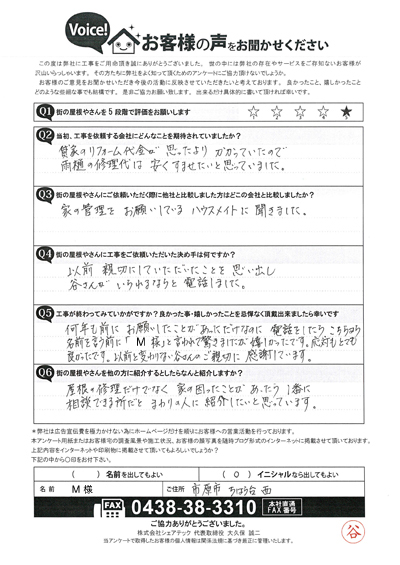 Voice! お客様の声をお聞かせください
この度は弊社に工事をご用命頂き誠にありがとうございました。世の中には弊社の存在やサービスをご存知ないお客様が
沢山いらっしゃいます。その方たちに弊社をよく知って頂くためのアンケートにご協力頂けないでしょうか。
お客様のご意見をお聞かせいただき今後の活動に反映させていただきたいと考えております。良かったこと、嬉しかったこと
どのような些細な事でも結構です。是非ご協力お願い致します。出来るだけ具体的に書いて頂ければ幸いです。
Q1 街の屋根やさんを5段階で評価をお願いします ☆ ☆ ☆ ☆ ★
Q2 当初、工事を依頼する会社にどんなことを期待されていましたか?
貸家のリフォーム代金が思ったよりかかっていたので
雨樋の修理代は安くすませたいと思っていました。
Q3 街の屋根やさんにご依頼いただく際に他社と比較しました方はどこの会社と比較しましたか?
家の管理をお願いしているハウスメイトに聞きました。
Q4 街の屋根やさんに工事をご依頼いただいた決め手は何ですか?
以前親切にしていただいたことを思い出し
谷さんがいられるならと電話しました。
Q5 工事が終わってみていかがですか?良かった事・嬉しかったことを忌憚なく頂戴出来ましたら幸いです
何年も前にお願いしたことがあっただけなのに電話をしたらこちらから
名前を言う前に「M様」と言われて驚きましたが嬉しかったです。応対もとても
良かったです。以前と変わりない谷さんのご親切に感謝しています。
Q6 街の屋根やさんを他の方に紹介するとしたらなんと紹介しますか?
屋根の修理だけでなく家の困ったことがあったら1番に
相談できる所だとまわりの人に紹介したいと思っています。
＊弊社は広告宣伝費を極力かけない為にホームページだけを頼りにお客様への営業活動を行っております。
本アンケート用紙またはお客様宅の調査風景や施工状況、お客様の顔写真を随時ブログ形式のインターネットに掲載させて頂いております。
上記内容をインターネットや印刷物に掲載させて頂いてもよろしいでしょうか?
下記の中から〇印をお付け下さい。
( ) 名前を出してもよい ( 〇 ) イニシャルなら出してもよい
名前 M様 ご住所 市原市 ちはら台西
FAX 0438-38-3310 本社直通 FAX番号
ご協力ありがとうございました。
株式会社シェアテック 代表取締役 大久保 誠二
当アンケートで取得したお客様の個人情報は関係法規に基づき厳正に管理いたします。
谷